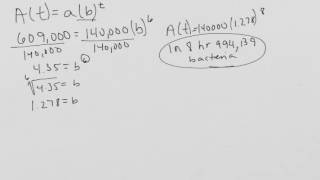 A(t)=a(b)^t
609,000=140,000(b)^6
140,000 140,000
4.35=b^6
6√4.35=b
1.278=b
A(t)=140000(1.278)^8
In 8 hr 994,139
bacteria